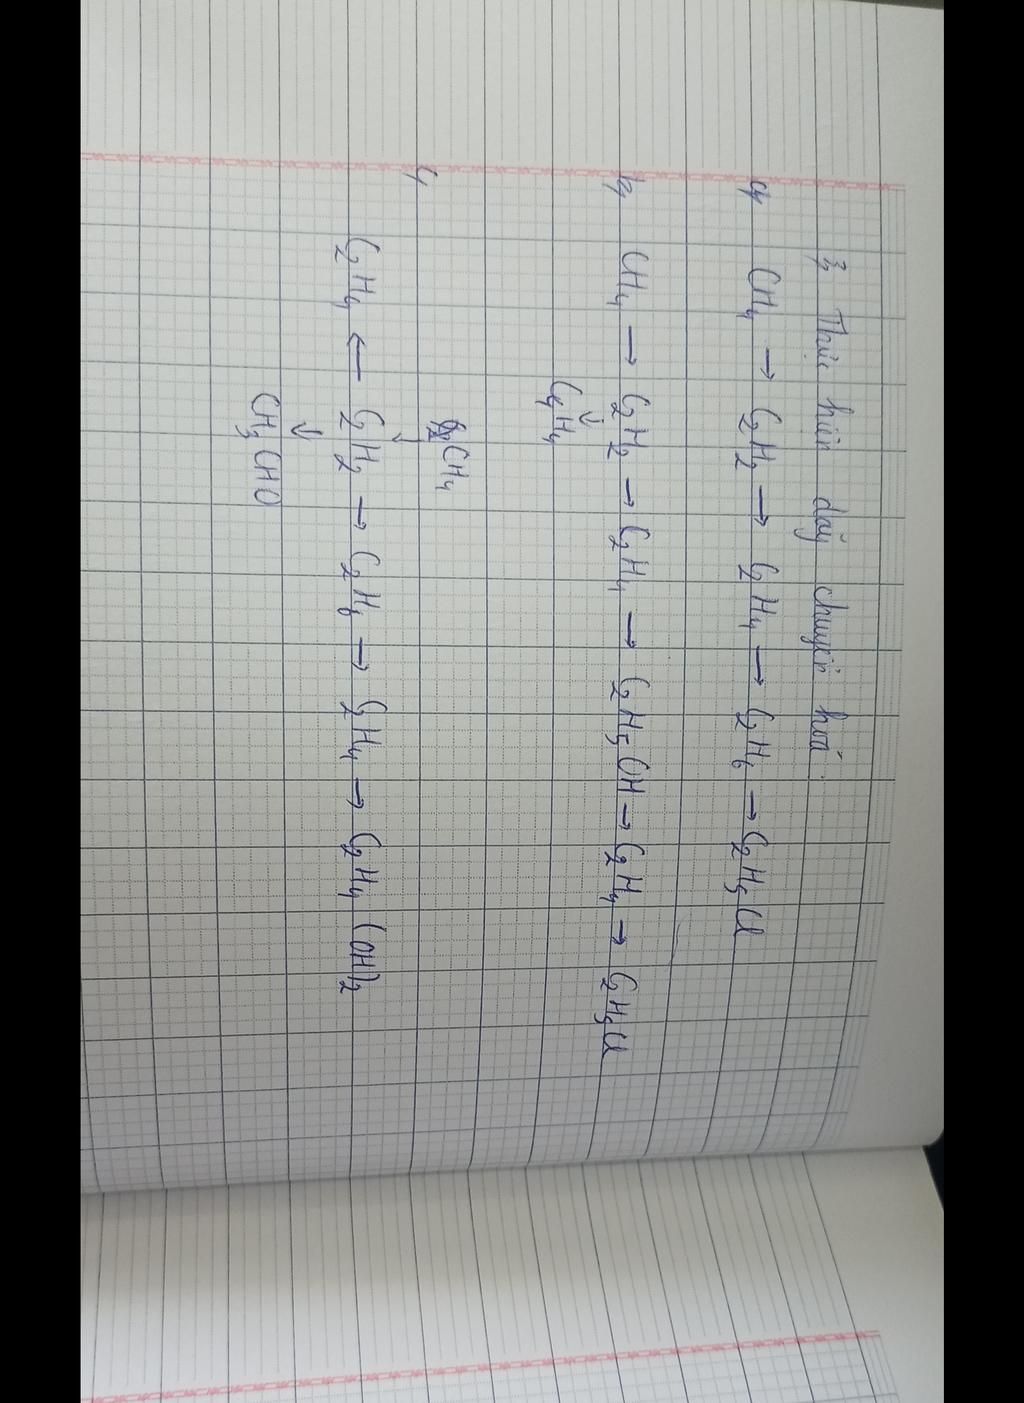 3, Thực hiện dãy chuyển hoá:
a, CH₄ → C₂H₂ → C₂H₄ → C₂H₆ → C₂H₅Cl
b, CH₄ → C₂H₂ → C₂H₄ → C₂H₅OH → C₂H₄ → C₂H₅Cl
↓
C₄H₄
CH₄
↓
C₂H₄ ← C₂H₂ → C₂H₆ → C₂H₄ → C₂H₄(OH)₂
↓
CH₃CHO